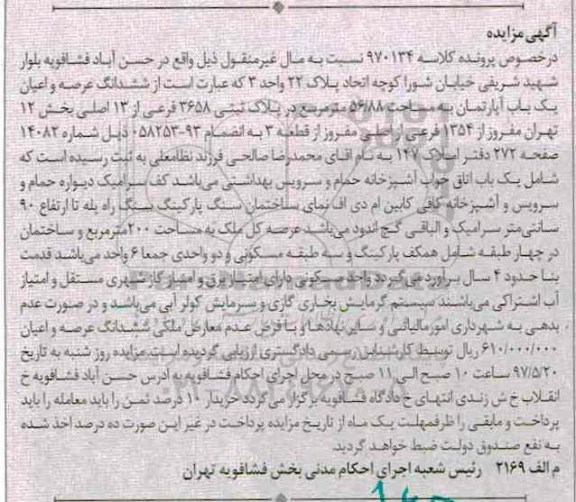 آگهی مزایده
درخصوص پرونده کلاسه ۹۷۰۱۳۴ نسبت به مال غیرمنقول ذیل واقع در حسن آباد فشافویه بلوار
شهید شریفی خیابان شورا کوچه اتحاد پلاک ۲۲ واحد ۳ که عبارت است از ششدانگ عرصه و اعیان
یک باب آپارتمان به مساحت ۵۶/۸۸ مترمربع در پلاک ثبتی ۳۶۵۸ فرعی از ۱۳ اصلی بخش ۱۲
تهران مفروز از ۱۳۵۴ فرعی از اصلی مفروز از قطعه ۳ به انضمام ۹۳-۰۵۸۲۵۳ ذیل شماره ۱۴۰۸۲
صفحه ۲۷۲ دفتر املاک ۱۴۷ به نام آقای محمدرضا صالحی فرزند نظامعلی به ثبت رسیده است که
شامل یک باب اتاق خواب آشپزخانه حمام و سرویس بهداشتی می‌باشد کف سرامیک دیواره حمام و
سرویس و آشپزخانه کافی کابین ام دی اف نمای ساختمان سنگ پارکینگ سنگ راه پله تا ارتفاع ۹۰
سانتی‌متر سرامیک و الباقی گچ اندود می‌باشد عرصه کل ملک به مساحت ۲۰۰مترمربع و ساختمان
در چهار طبقه شامل همکف پارکینگ و سه طبقه مسکونی و دو واحدی جمعا ۶ واحد می‌باشد قدمت
بنا حدود ۴ سال برآورد می‌گردد واحد مسکونی دارای امتیاز برق و امتیاز گاز شهری مستقل و امتیاز
آب اشتراکی می‌باشند سیستم گرمایش بخاری گازی و سرمایش کولر آبی می‌باشد و در صورت عدم
بدهی به شهرداری امور مالیاتی و سایر نهادها و با فرض عدم معارض ملکی ششدانگ عرصه و اعیان
۶۱۰/۰۰۰/۰۰۰ ریال توسط کارشناس رسمی دادگستری ارزیابی گردیده است مزایده روز شنبه به تاریخ
۹۷/۵/۲۰ ساعت ۱۰ صبح الی ۱۱ صبح در محل اجرای احکام فشافویه به آدرس حسن آباد فشافویه خ
انقلاب خ ش زندی انتهای خ دادگاه فشافویه برگزار می‌گردد خریدار ۱۰ درصد ثمن را باید معامله را باید
پرداخت و مابقی را ظرف مهلت یک ماه از تاریخ مزایده پرداخت در غیر این صورت ده درصد اخذ شده
به نفع صندوق دولت ضبط خواهد گردید.
م الف ۲۱۶۹ رئیس شعبه اجرای احکام مدنی بخش فشافویه تهران